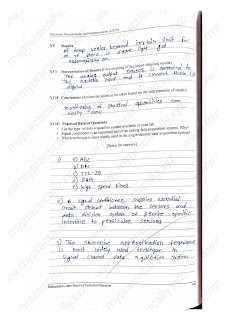 Electronic Measurements and Instrumentation
XV Results
If temp varies beyond certain limit for
light get
automatically on
XVI Interpretation of Results (Give meaning of the above obtained results)
The analog output sensors is connected to
The analog input and it convert them to
digital
XVII Conclusions (Actions/decisions to be taken based on the interpretation of results).
monitoring of physical quantities can
easily done
XVIII Practical Related Questions
1. List the type of data acquisition system available in your lab.
2. Signal conditioner is an important part of an analog data acquisition system. Why?
3. Which technique is most widely used in the single channel data acquisition system?
(Space for answers)
1) 1) ADC
2) DAC
3) TTL-IO
4) RAM
5) High Speed timers
2) A signal conditioner supplies essential
circuit element between the sensors and
data division system to provide specific
interface to particular sensors.
3) The successive approximation technique
is most widely used technique in
Signal channel data acquisition system
Maharashtra state Board of Technical Education